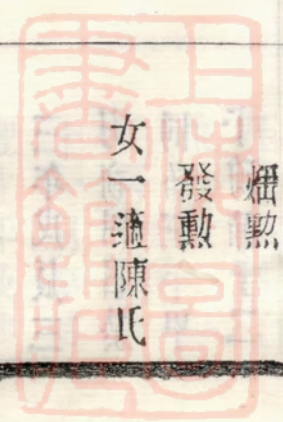 勲
發勲
女一適陳氏